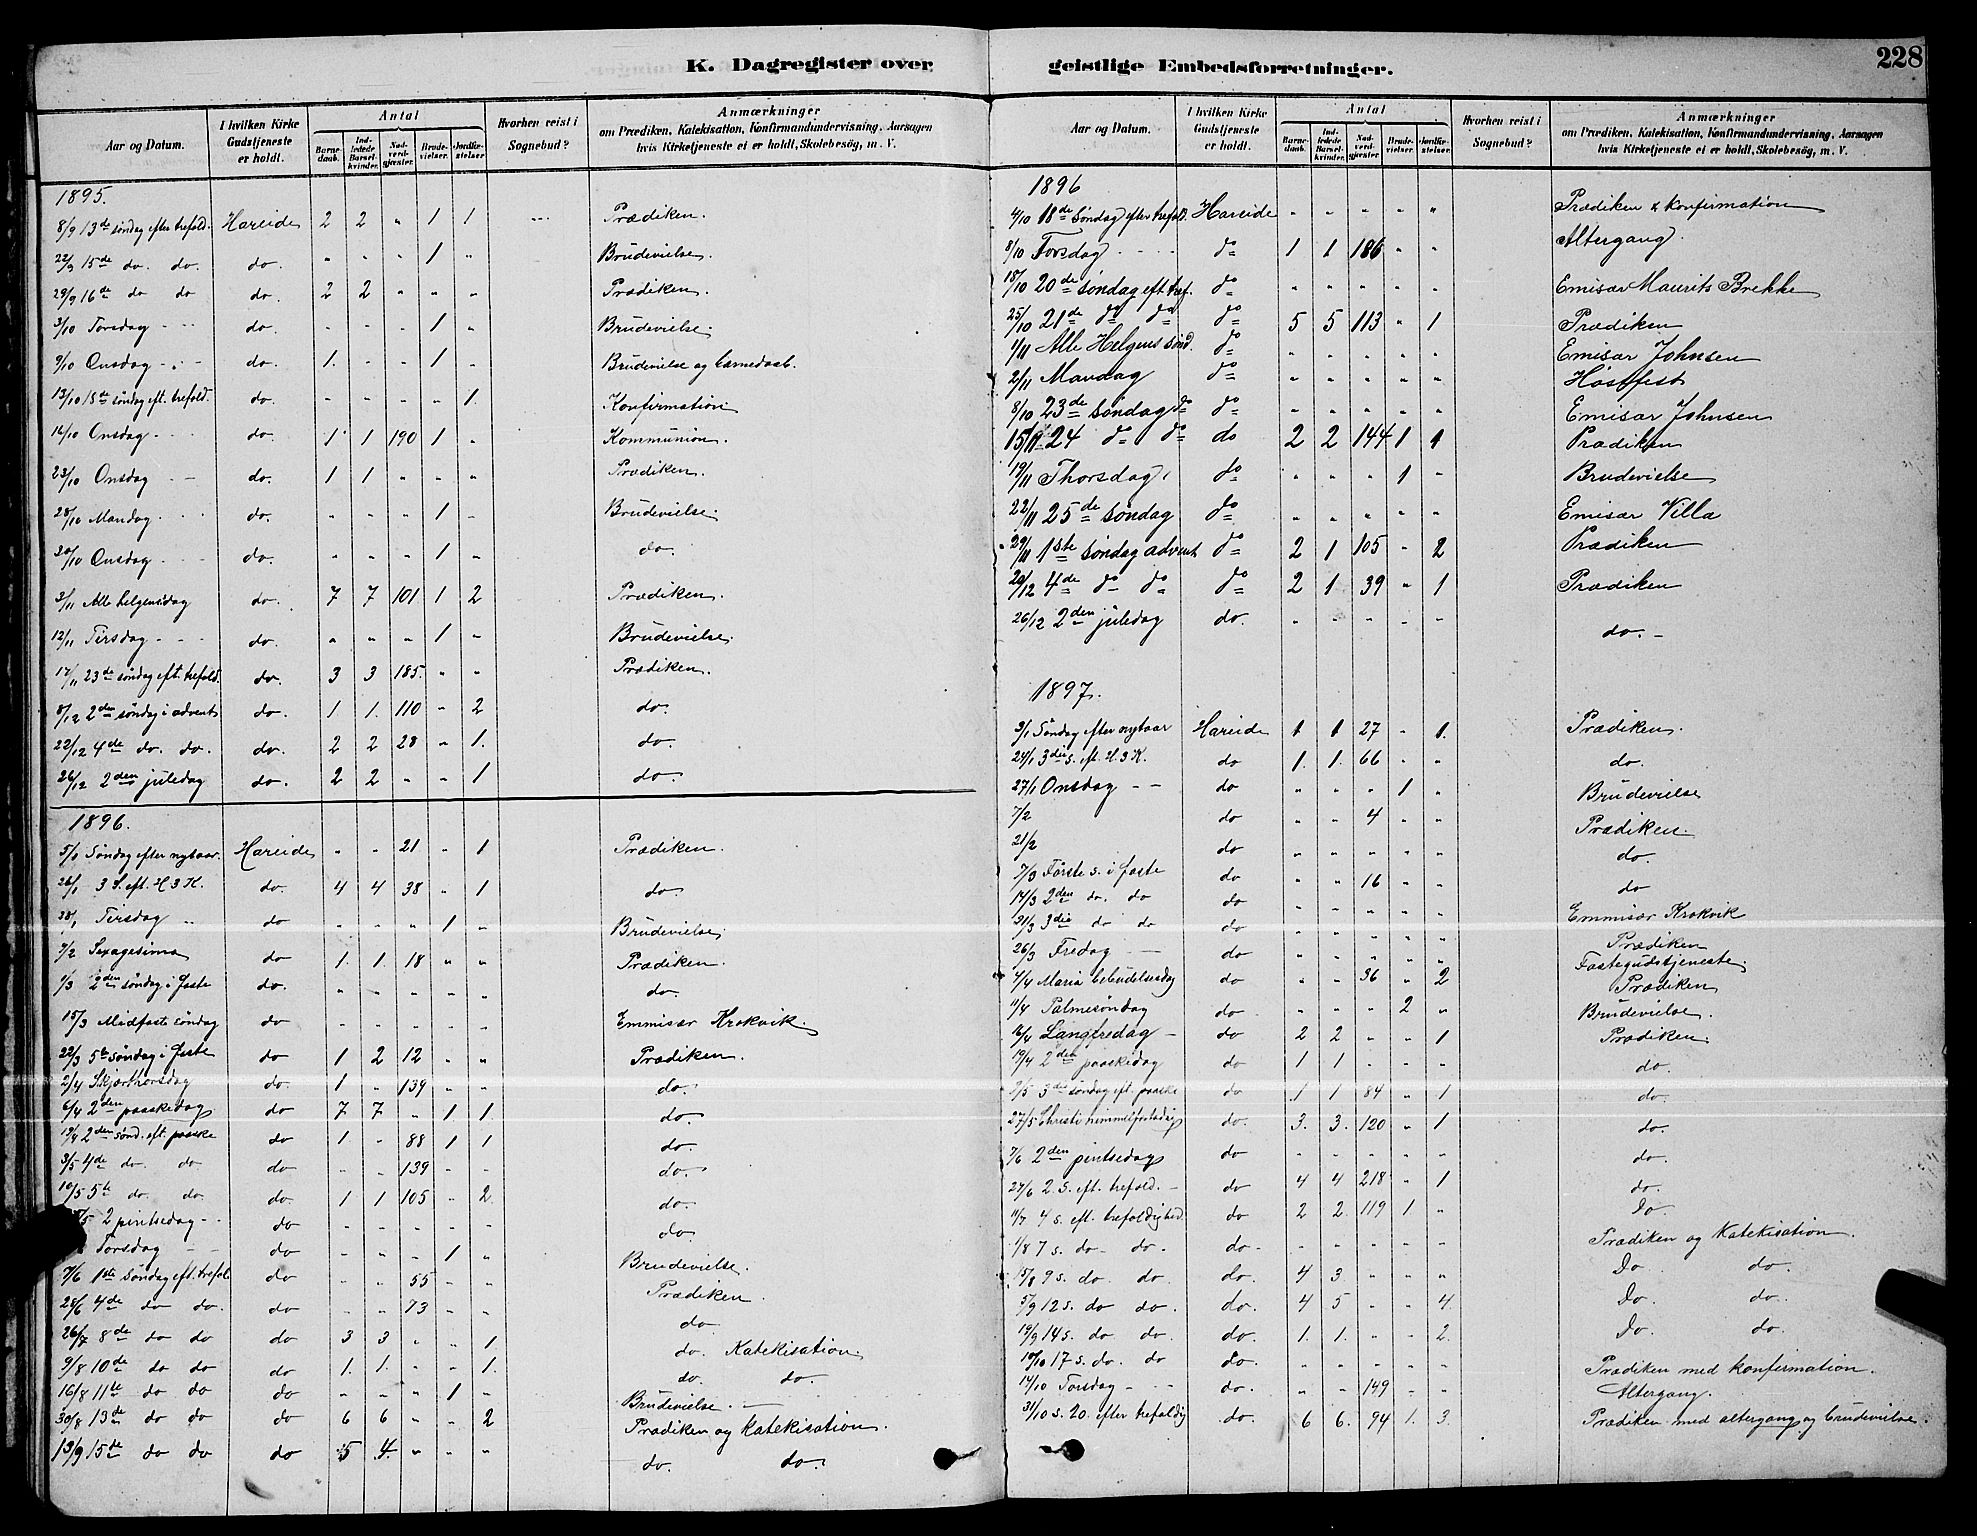 K. Dagregister over geistlige Embedsforretninger.
228
Aar og Datum. I hvilken Kirke Gudstjeneste er holdt. Antal Barnedaab. Indledede Barselkvinder. Nadverdgjester. Brudevielser. Jordfæstelser. Hvorhen reist i Sognebud? Anmærkninger om Prædiken, Katekisation, Konfirmandundervisning, Aarsagen hvis Kirketjeneste ei er holdt, Skolebesøg, m. V.
1895.
8/9 13de søndag efter trefold. Hareide 2 2 " 1 1 --- Prædiken.
22/9 15de do. do. do. " " " 1 " Brudevielse.
29/9 16de do do do. 2 2 " " " Prædiken.
3/10 Torsdag - - - do. " " " 1 " Brudevielse.
9/10 Onsdag - - - do. 1. - - 1 " Brudevielse og barnedaab.
13/10 18de søndag eft. trefold. do. " " " " 1. Konfirmation
16/10 Onsdag - - - do. 1 1 190 1 " Kommunion.
23/10 Onsdag - - do. 1 1 " " " Prædiken.
28/10 Mandag - - - do. " " " 1 " Brudevielse.
30/10 Onsdag - - - do. " " " 1 " do.
3/11 Alle helgensdag do. 7 7 101 1 2 Prædiken.
12/11 Tirsdag - - - do. " " " 1 " Brudevielse.
17/11 23de søndag eft. trefold. do. 3 3 185. " " Prædiken.
8/12 2den søndag i advent do. 1. 1. 110 " 2 do.
22/12 4de do. do. do. 2 2 28 " 1. do.
26/12 2den juledag do. 2 2 " " 1 do.
1896.
5/1 Søndag efter nytaar. Hareide " " 21 " 1 Prædiken.
26/1 3 S. eft. H 3 K. do. 4 4 38 " 1 do
28/1 Tirsdag " do " " " 1 " Brudevielse.
9/2 Sexagesima do 1. 1. 18 " " Prædiken.
1/3 2den søndag i faste do. " " " " " do.
15/3 Midfaste søndag do " " " " " Emmisær Krokvik.
22/3 5te søndag i faste do 1 2 12 " " Prædiken.
2/4 Skjærthorsdag do. 1 " 139 " " do.
6/4 2den paaskedag do 7 7 " 1 1. do.
19/4 2den sønd. eft. paaske do 1. " 88 1 1 do.
3/5 4de do. do. do " " 139 " " do.
10/5 5te do. do. do. 1 1 105 " 2. do.
/5 2 pintsedag - - do - - - - - do.
Torsdag - - do " " " 1 " Brudevielse.
7/6 1ste søndag eft. trefol. do " " 55 " " Prædiken.
28/6 4de do do. do " " 73 " " do
26/7 8de do do do 3 3 " " 1 do. Katekisation.
9/8 10de do do do 1. 1. " " 1. do. do.
16/8 11te do do do " " " 1 " Brudevielse. -
30/8 13de do do do 6 6 " " 2 Prædiken og katekisation.
13/9 15te do do do 5 4. " " " do. do.
Aar og Datum. I hvilken Kirke Gudstjeneste er holdt. Antal Barnedaab. Indledede Barselkvinder. Nadverdgjester. Brudevielser. Jordfæstelser. Hvorhen reist i Sognebud? Anmærkninger om Prædiken, Katekisation, Konfirmandundervisning, Aarsagen hvis Kirketjeneste ei er holdt, Skolebesøg, m. V.
1896
4/10 18de søndag efter trefol. Hareide " " " " " Prædiken & konfirmation
8/10 Torsdag - - - - do 1 1 186 " " Altergang.
18/10 20de søndag eft tref. do " " " " " Emisær Maurits Brekke
25/10 21de do do do 5 5 113 " 1 Prædiken
1/11 Alle Helgens sønd. do " " " " " Emisær Johnsen
2/11 Mandag do " " " " " Høstfest
8/10 23de søndag do do " " " " " Emisær Johnsen
15/11 24 do do do 2 2 144 1 1 Prædiken
19/11 Thorsdag. do " " " 1 " Brudevielse
22/11 25de søndag do " " " " " Emisær Villa
29/11 1ste søndag advent do 2 1 105 " 2 Prædiken
20/12 4de do do do 2 1 39 " 1 Prædiken
26/12 2den juledag do. " " " " " do. -
1897.
3/1 Søndag efter nytaar Hareide 1 1 27 " 1. Prædiken.
24/1 3die s. eft. H. 3 K. do 1. 1. 66 " " do.
27/1 Onsdag - - do " " " 1 " Brudevielse
7/2 do " " 4 " " Prædiken.
21/2 do " " " " " do.
7/3 Første s. i faste do " " 16 " " do
14/3 2den do. do do " " " " " Emmisær Krokvik
21/3 3die do do do " " " " " Prædiken
26/3 Fredag - do " " " " " Fastegudstjeneste.
4/4 Maria bebudelsesdag do " " 36 " 2 Prædiken
11/4 Palmesøndag do " " " 2 " Brudevielse.
16/4 Langfredag - do 2 2 " " 1 Prædiken.
19/4 2den paaskedag do 1 1 " " do.
2/5 3die søndag eft. paaske do 1 1 84 " 1 do.
27/5 Christi himmelfartsdag do. 3. 3. 120 " 1 do.
7/6 2den pintsedag do " " " " " do.
27/6 2. S. eft. trefold. - do 4 4 218 " 1 do.
11/7 4 s. eft. trefoldighed. do 2 2. 119 1 " Do.
1/8 7 s. do - do. do. " " " " " Prædiken og Katekisation.
15/8 9 s. do. do. do. 4 3 " " " Do do.
5/9 12 s. do do. do. 4 5 " " 4. Do. do.
19/9 14 s. do do. do. 1. 1. " " 2. Do. do.
10/10 17 s. do. do do. " " " " " Prædiken med konfirmation.
14/10 Torsdag - - - do. " " 149 " " Altergang.
31/10 s. 20. efter trefoldig do. 6 6. 94 1. 3. Prædiken med altergang og brudevielse.